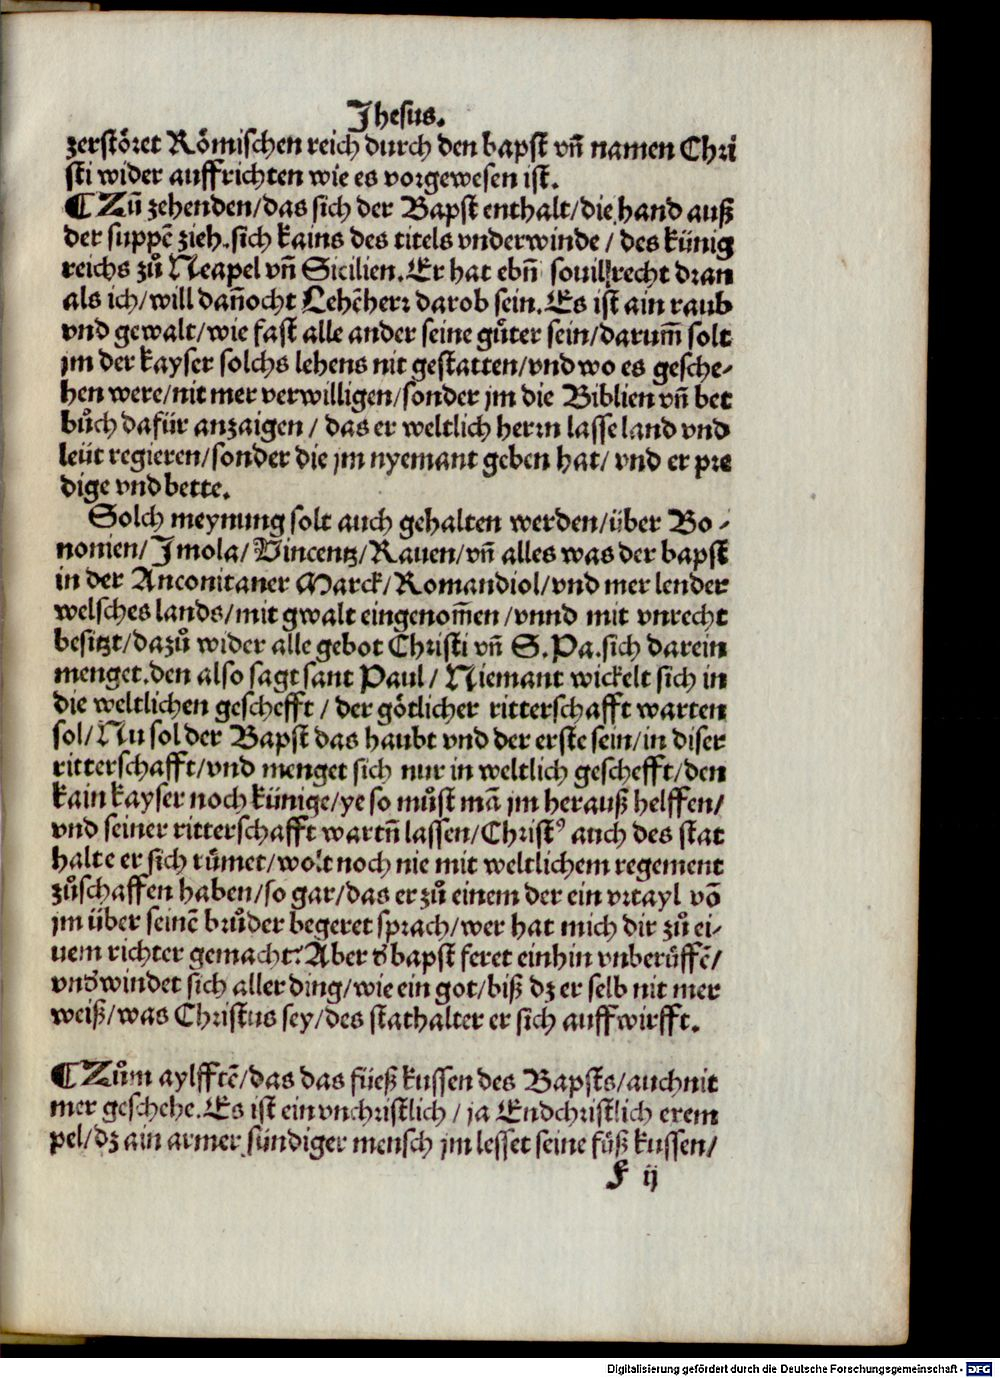 Jhesus.
zerstöret Römischen reich durch den bapst vñ namen Chri
sti wider auffrichten wie es vorgewesen ist.
¶ Zů zehenden/das sich der Bapst enthalt/die hand auß
der suppē zieh.sich kains des titels vnderwinde / des künig
reichs zů Neapel vñ Sicilien.Er hat ebñ souil recht dran
als ich/will dañocht Lehēherr darob sein.Es ist ain raub
vnd gewalt/wie fast alle ander seine gůter sein/darum̃ solt
jm der kayser solchs lehens nit gestatten/vnd wo es gesche-
hen were/nit mer verwilligen/sonder jm die Biblien vñ bet
bůch dafür anzaigen / das er weltlich herrn lasse land vnd
leüt regieren/sonder die jm nyemant geben hat/ vnd er pre
dige vnd bette.
Solch meynung solt auch gehalten werden/über Bo-
nonien/Jmola/Vincentz/Rauen/vñ alles was der bapst
in der Anconitaner Marck/Romandiol/vnd mer lender
welsches lands/mit gwalt eingenom̃en/vnnd mit vnrecht
besitzt/dazů wider alle gebot Christi vñ S.Pa.sich darein
menget.den also sagt sant Paul/ Niemant wickelt sich in
die weltlichen geschefft / der götlicher ritterschafft warten
sol/Nu sol der Bapst das haubt vnd der erste sein/in diser
ritterschafft/vnd menget sich nur in weltlich geschefft/den
kain kayser noch künige/ye so můst mā jm herauß helffen/
vnd seiner ritterschafft wartñ lassen/Christꝰ auch des stat
halte er sich růmet/wolt noch nie mit weltlichem regement
zůschaffen haben/so gar/das er zů einem der ein vrtayl vō
jm über seinē brůder begeret sprach/wer hat mich dir zů ei-
nem richter gemacht? Aber d̕ bapst feret einhin vnberůffē/
vnd̕windet sich aller ding/wie ein got/biß dz er selb nit mer
weiß/was Christus sey/des stathalter er sich auffwirfft.
¶ Zům aylfftē/das das füeß kussen des Bapsts/auch nit
mer geschehe.Es ist ein vnchristlich / ja Endchristlich exem
pel/dz ain armer sündiger mensch jm lesset seine fůß kussen/
F ij
Digitalisierung gefördert durch die Deutsche Forschungsgemeinschaft - DFG